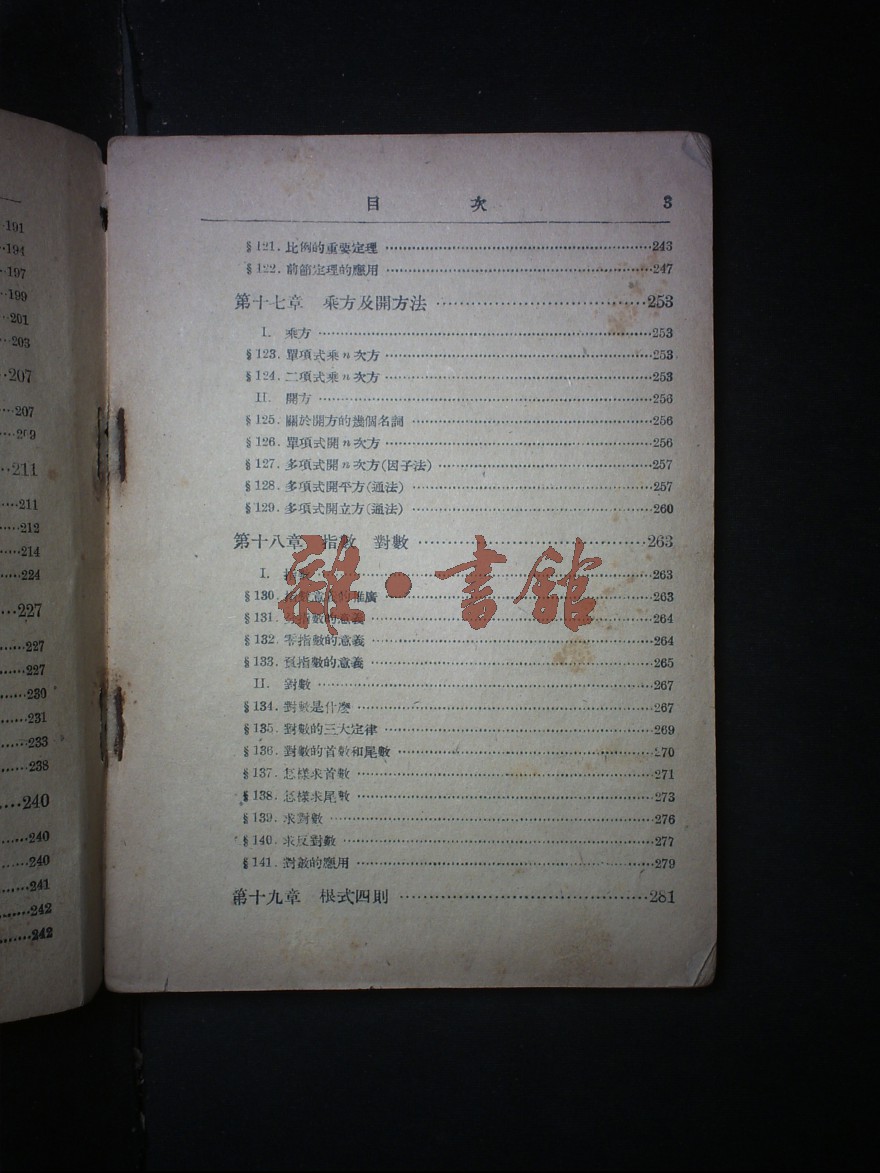 191
194
197
199
201
203
207
207
211
211
212
214
224
227
227
227
230
231
233
238
240
240
240
241
242
242
目 次 3
§121. 比例的重要定理 243
§122. 前節定理的應用 247
第十七章 乘方及開方法 253
I. 乘方 253
§123. 單項式乘n次方 253
§124. 二項式乘n次方 253
II. 開方 256
§125. 關於開方的幾個名詞 256
§126. 單項式開n次方 256
§127. 多項式開n次方(因子法) 257
§128. 多項式開平方(通法) 257
§129. 多項式開立方(通法) 260
第十八章 指數 對數 263
I. 指數 263
§130. 指數意義的推廣 263
§131. 指數的意義 264
§132. 零指數的意義 264
§133. 負指數的意義 265
II. 對數 267
§134. 對數是什麽 267
§135. 對數的三大定律 269
§136. 對數的首數和尾數 270
§137. 怎樣求首數 271
§138. 怎樣求尾數 273
§139. 求對數 276
§140. 求反對數 277
§141. 對數的應用 279
第十九章 根式四則 281
雜·書館